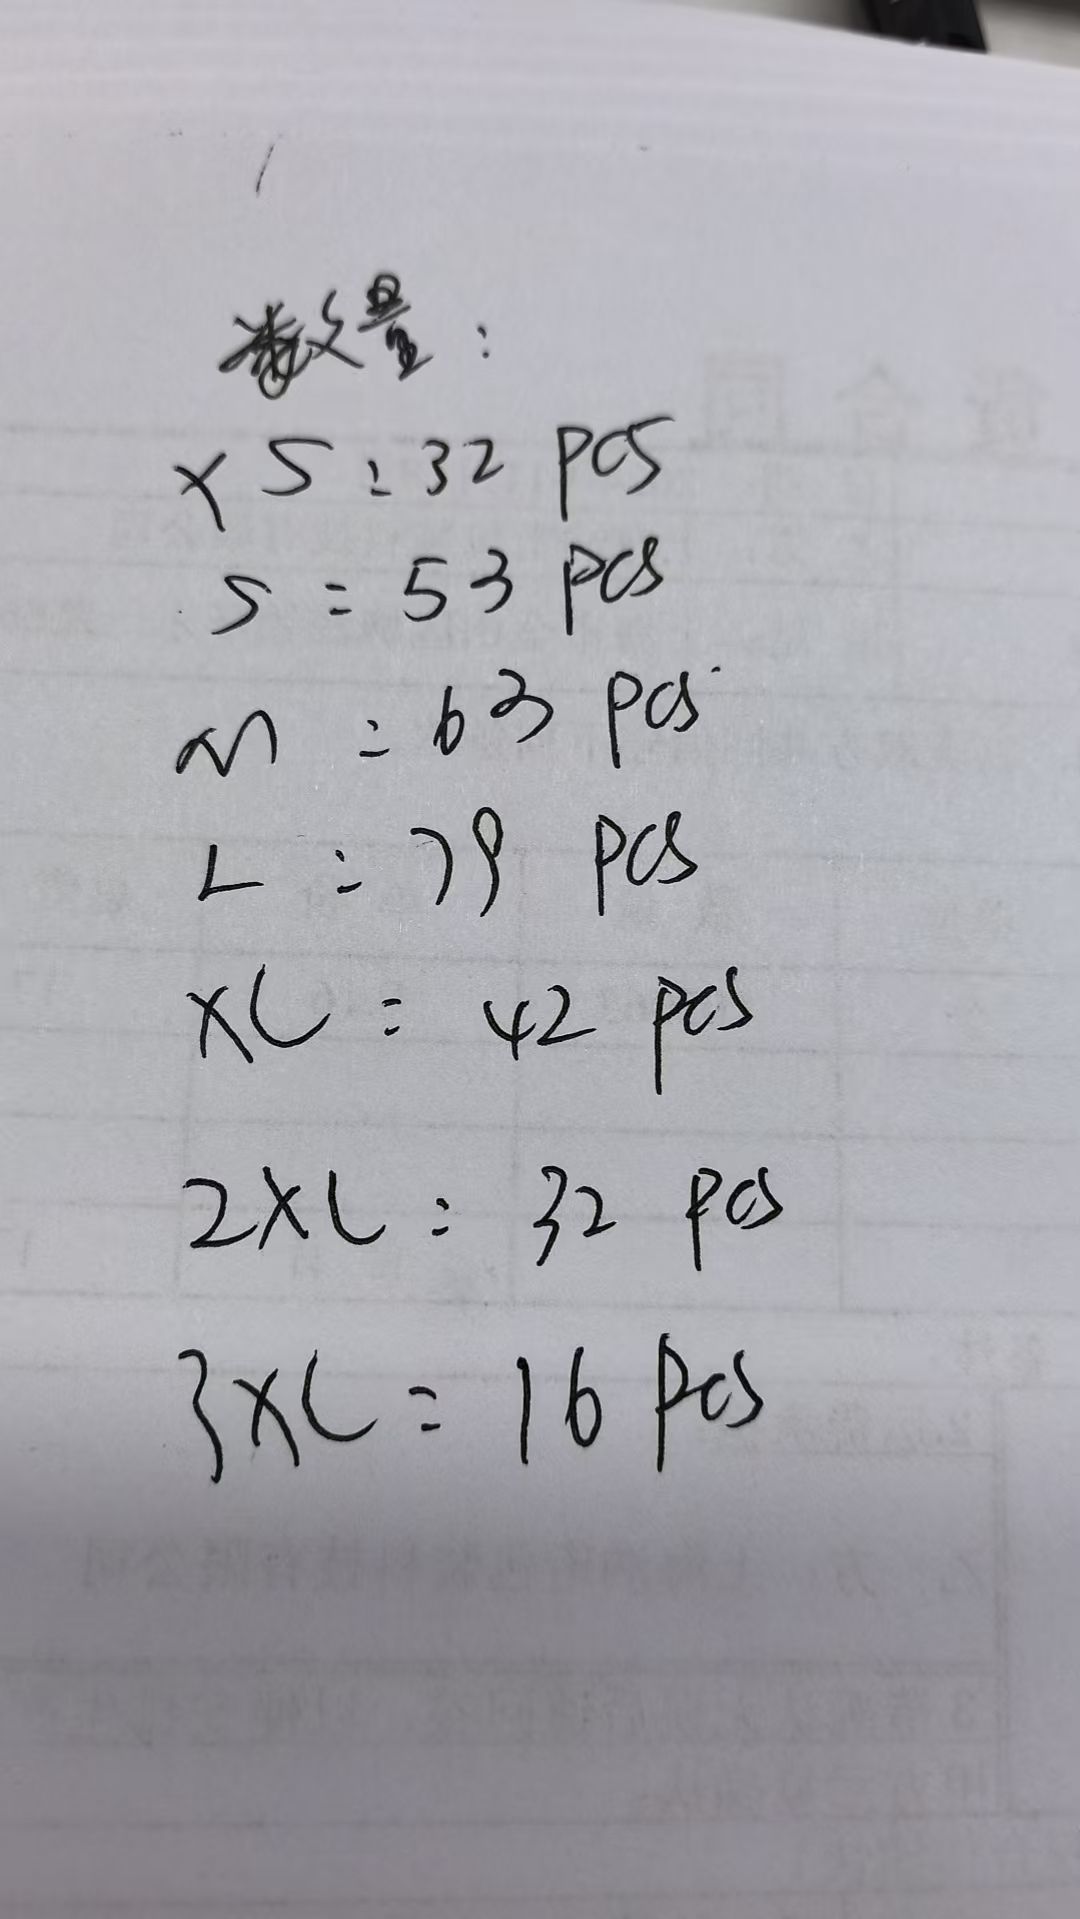 数量:
XS:32 pcs
S:53 pcs
M:63 pcs
L:79 pcs
XL:42 pcs
2XL:32 pcs
3XL:16 pcs